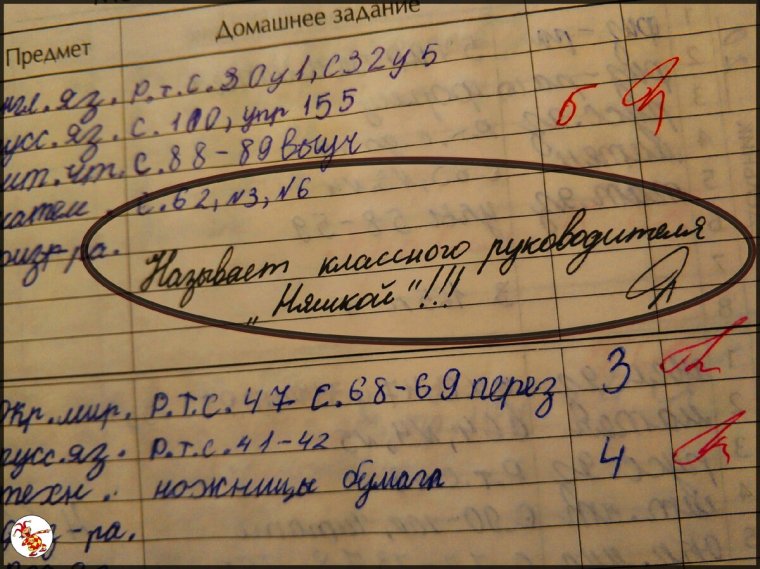 Предмет Домашнее задание
нгл.яз. Р.т.с.30у1, с32у5
усс.яз. с.110, упр 155 5
ит.чт. с.88-89 выуч
матем. с.62, №3, №6
физк-ра.
Называет классного руководителя
„Няшкой"!!!
окр.мир. Р.т.с.47 с.68-69 перез 3
русс.яз. Р.т.с.41-42
техн. ножницы бумага 4
физ-ра.